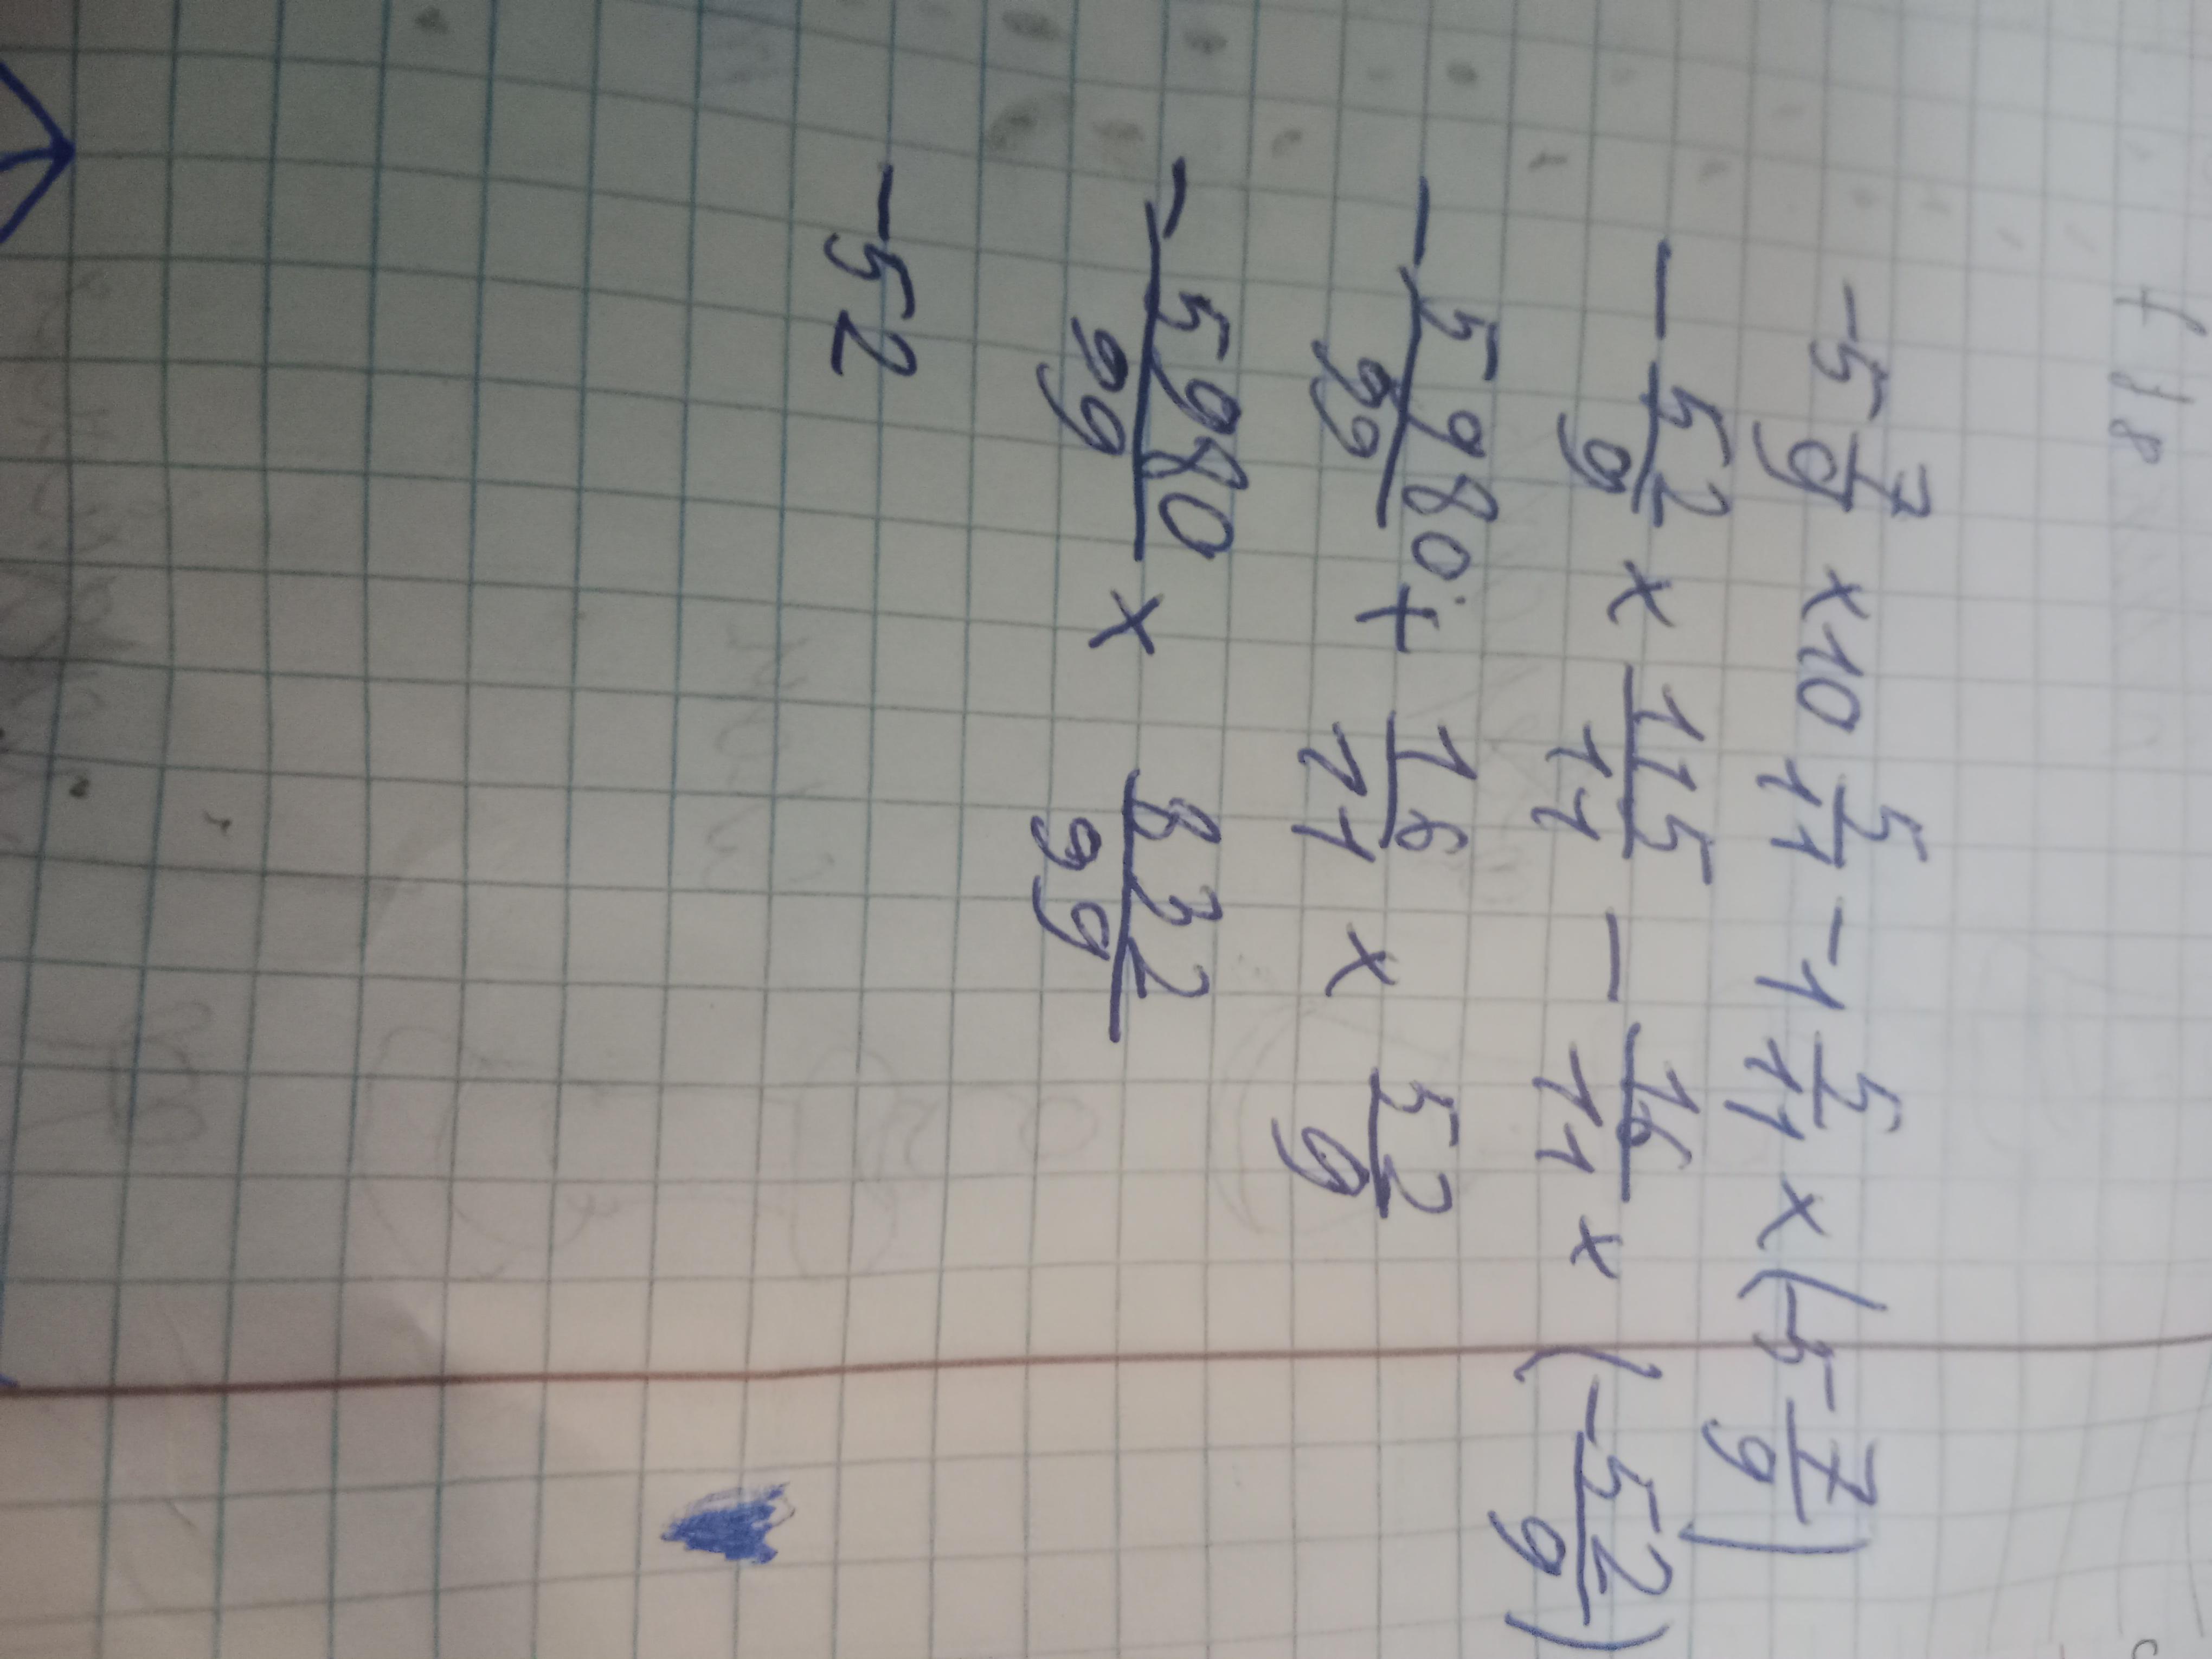 -5 7/9 x 10 5/11 - 1 5/11 x (-5 7/9)
- 52/9 x 115/11 - 16/11 x (-52/9)
- 5980/99 + 16/11 x 52/9
- 5980/99 x 832/99
-52